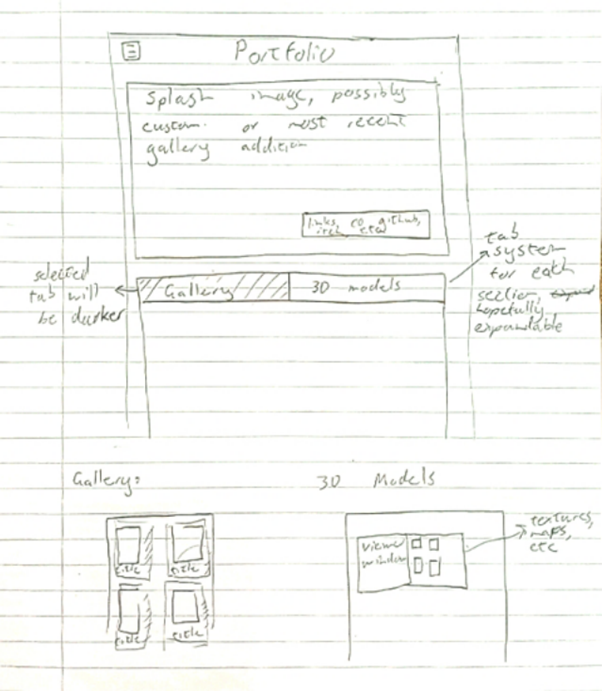 Portfolio
Splash image, possibly
custom or most recent
gallery addition
links to github,
itch, etc
selected
tab will
be darker
Gallery
3D models
tab
system
for each
section,
hopefully
expandable
Gallery:
title
title
title
title
3D Models
viewer
window
textures,
maps,
etc